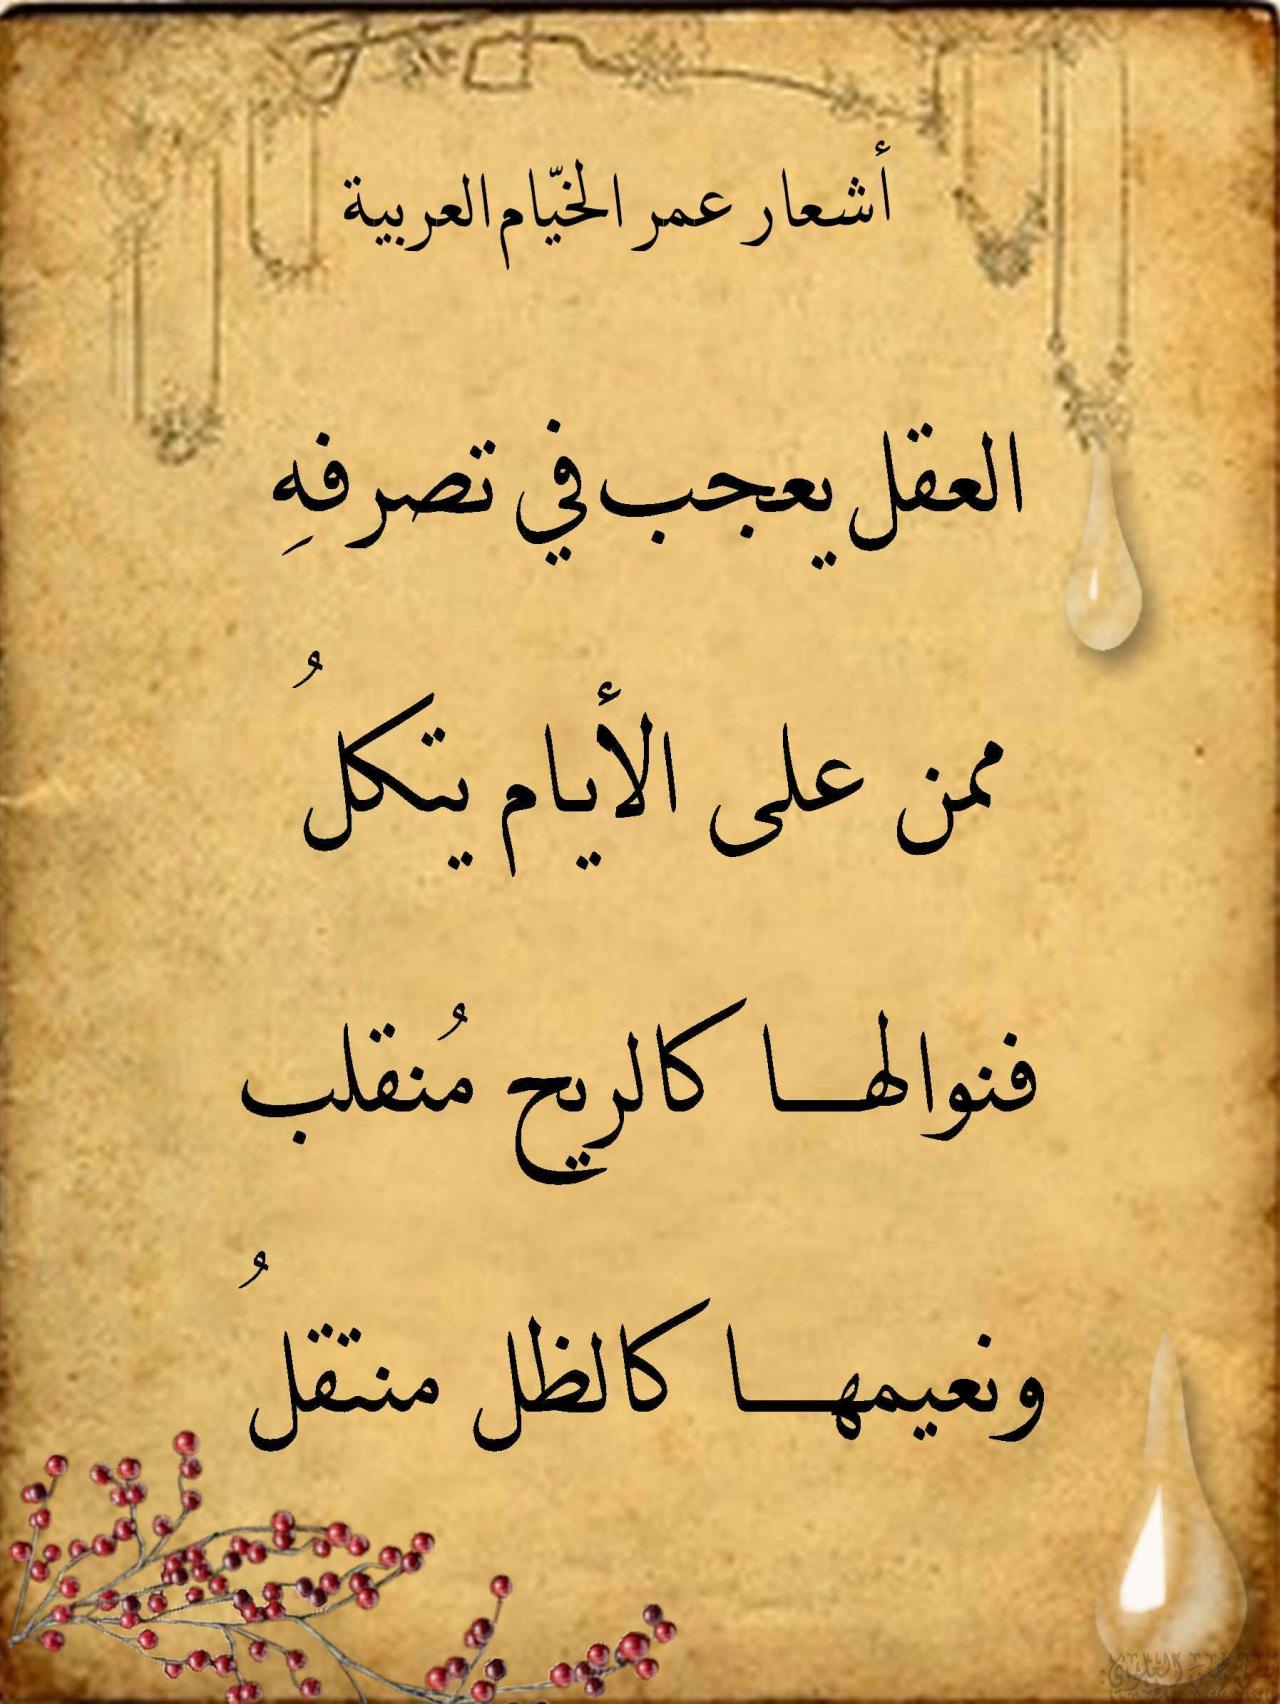 أشعار عمر الخيّام العربية
العقل يعجب في تصرفهِ
ممن على الأيام يتكلُ
فنوالهـــا كالريح مُنقلب
ونعيمهـــا كالظل منتقلُ